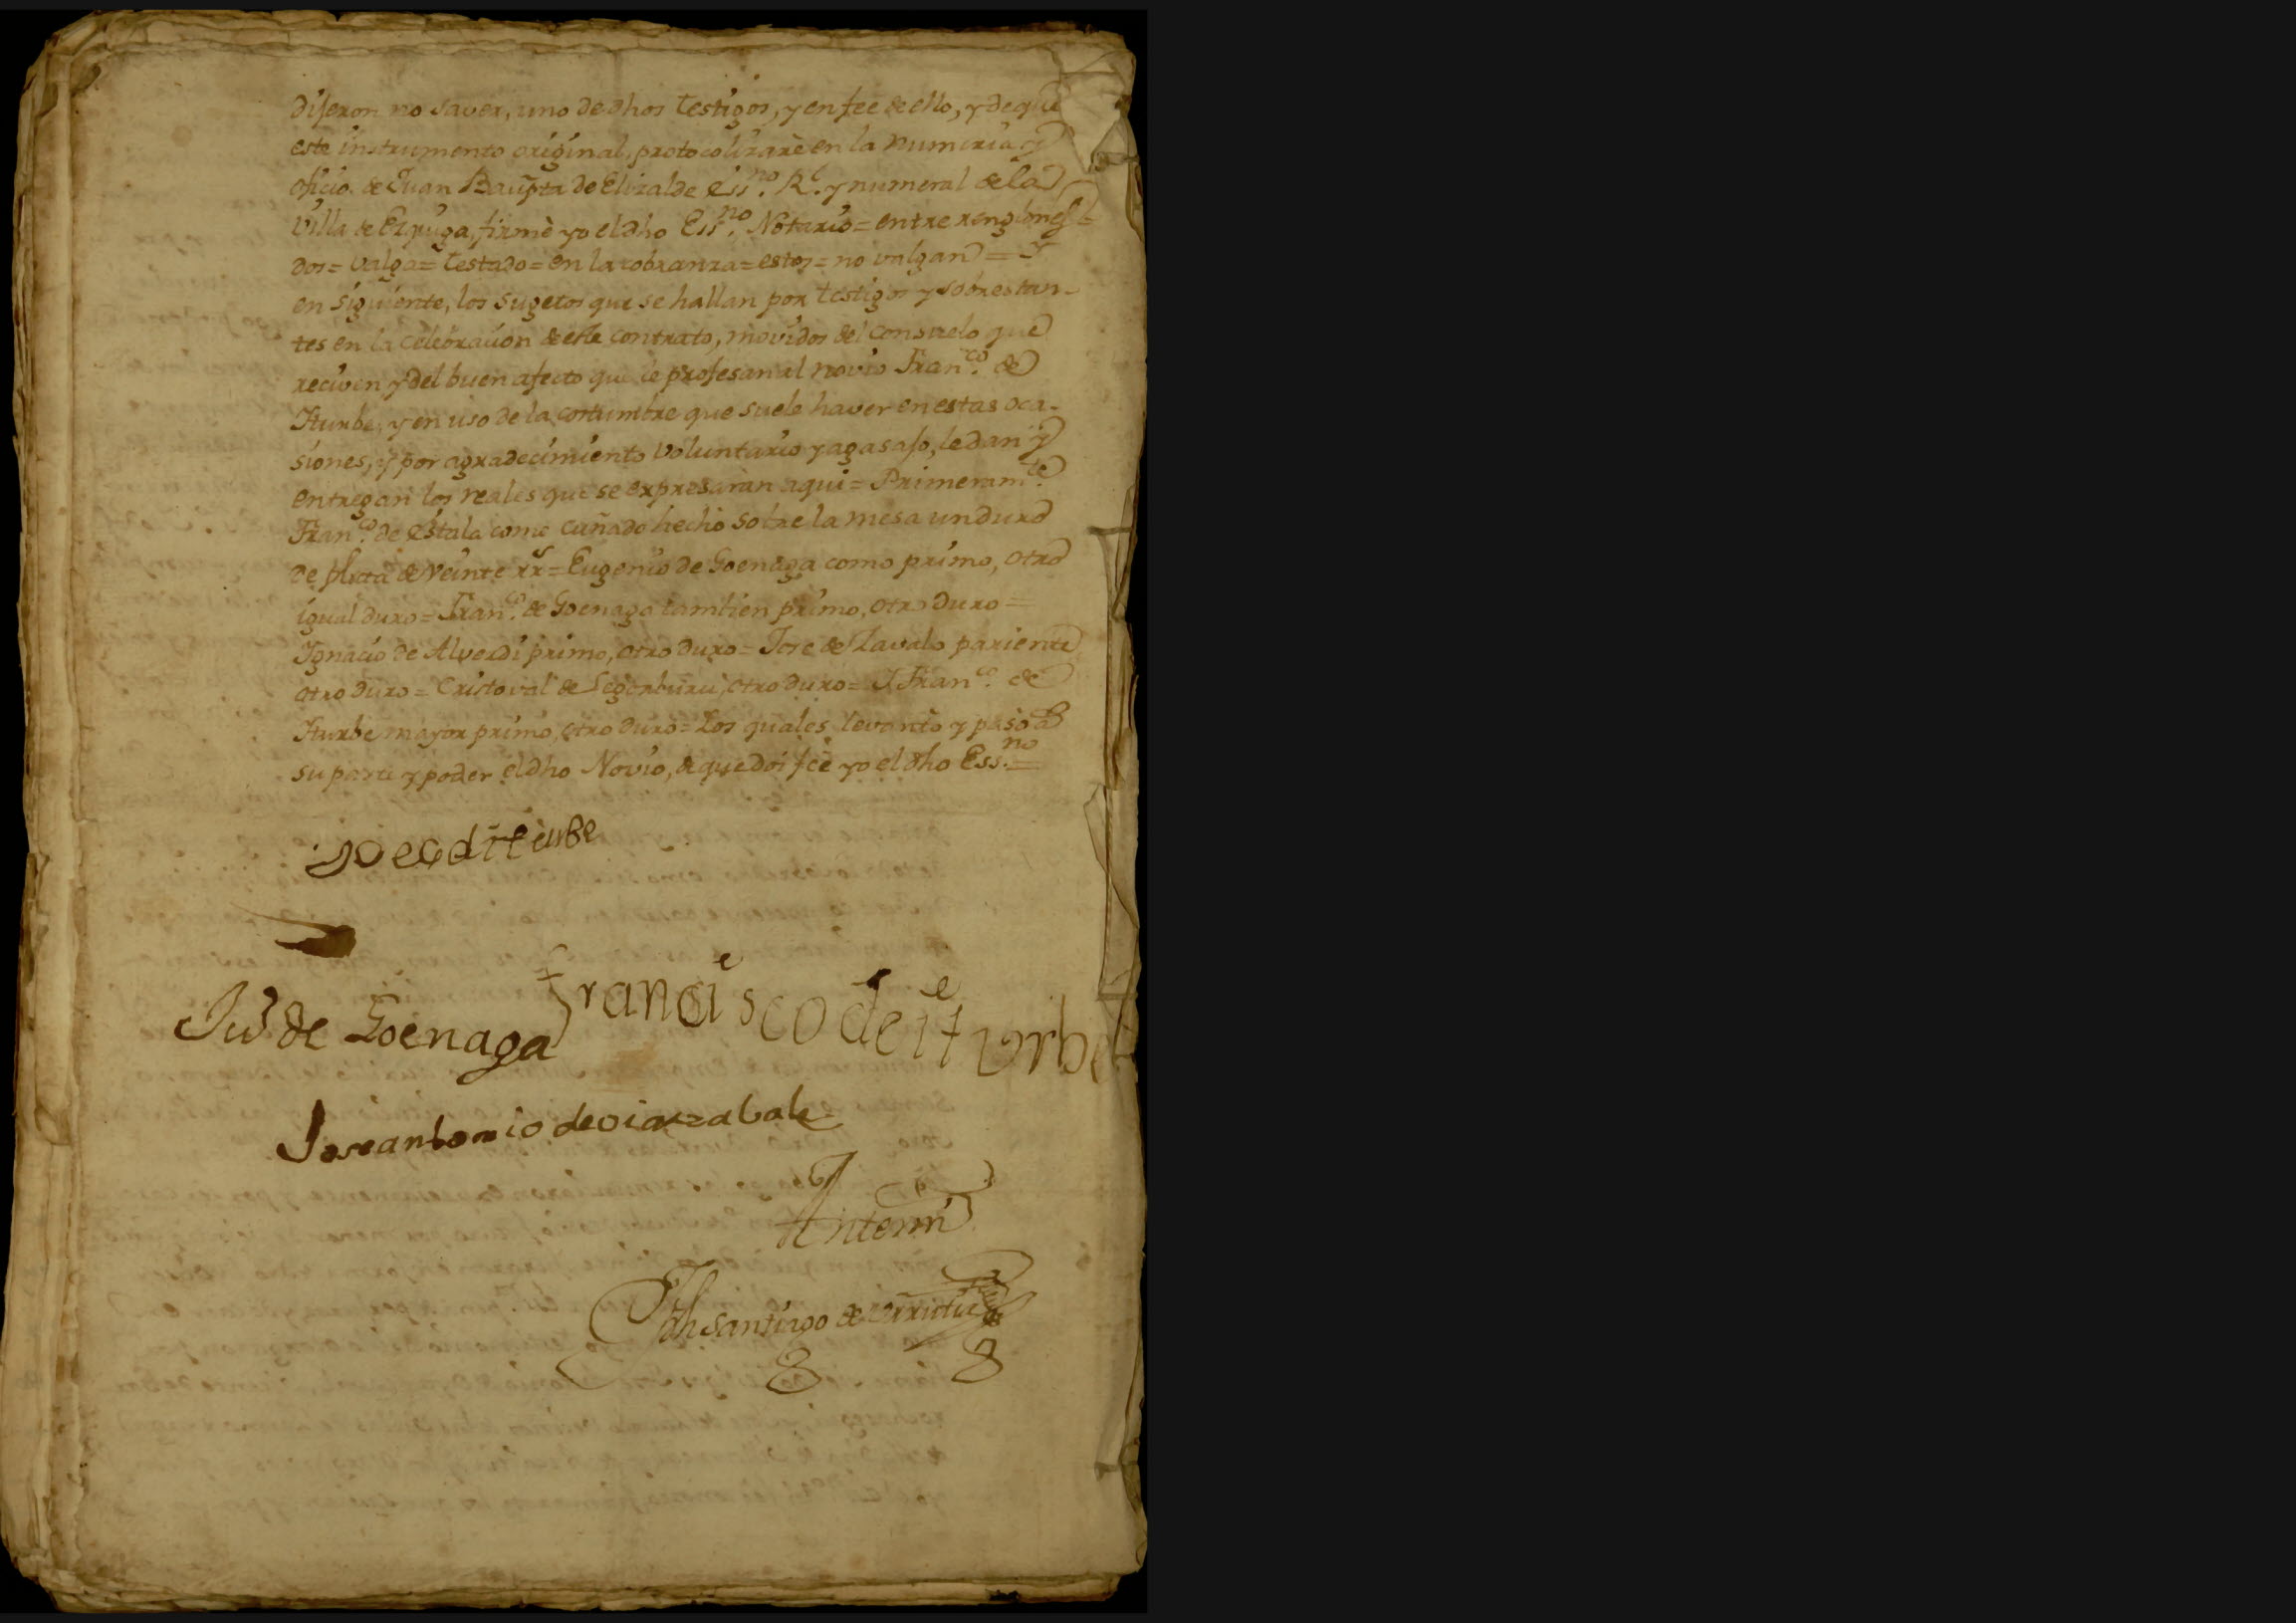 dijeron no saver, uno de dhos testigos, y en fee de ello, y de que
este instrumento original, protocolizarè en la numeria y
oficio de Juan Baupta de Elizalde Essno. Rl. y numeral de la
Villa de Ezquiga, firmè yo el dho Essno. Notario = entre renglones =
dos = valga = testado = en la cobranza = estos = no valgan = Y
en siguiente, los sugetos que se hallan por testigos y sobrestan-
tes en la celebración de este contrato, movidos del consuelo que
reciven, y del buen afecto que le profesan al novio Franco. de
Iturbe, y en uso de la costumbre que suele haver en estas oca-
siones, y por agradecimiento voluntario y agasajo, le dan y
entregan los reales que se expresaràn aqui = Primeramte.
Franco. de Estala como cuñado hecho sobre la mesa un duro
de plata de veinte rr = Eugenio de Goenaga como primo, otro
igual duro = Franco. de Goenaga tambien primo, otro duro =
Ignacio de Alverdi primo, otro duro = Jose de Zavalo pariente
otro duro = Cristoval de Legorburu, otro duro = I Franco. de
Iturbe mayor primo, otro duro = Los quales levantò y pasò a
su parte y poder el dho Novio, de que doi feè yo el dho Essno. =
Ju de Goenaga
Francisco de iturbe
Jose antonio de oiarzabal
Ante mi
Jph Santiago de Urrutia